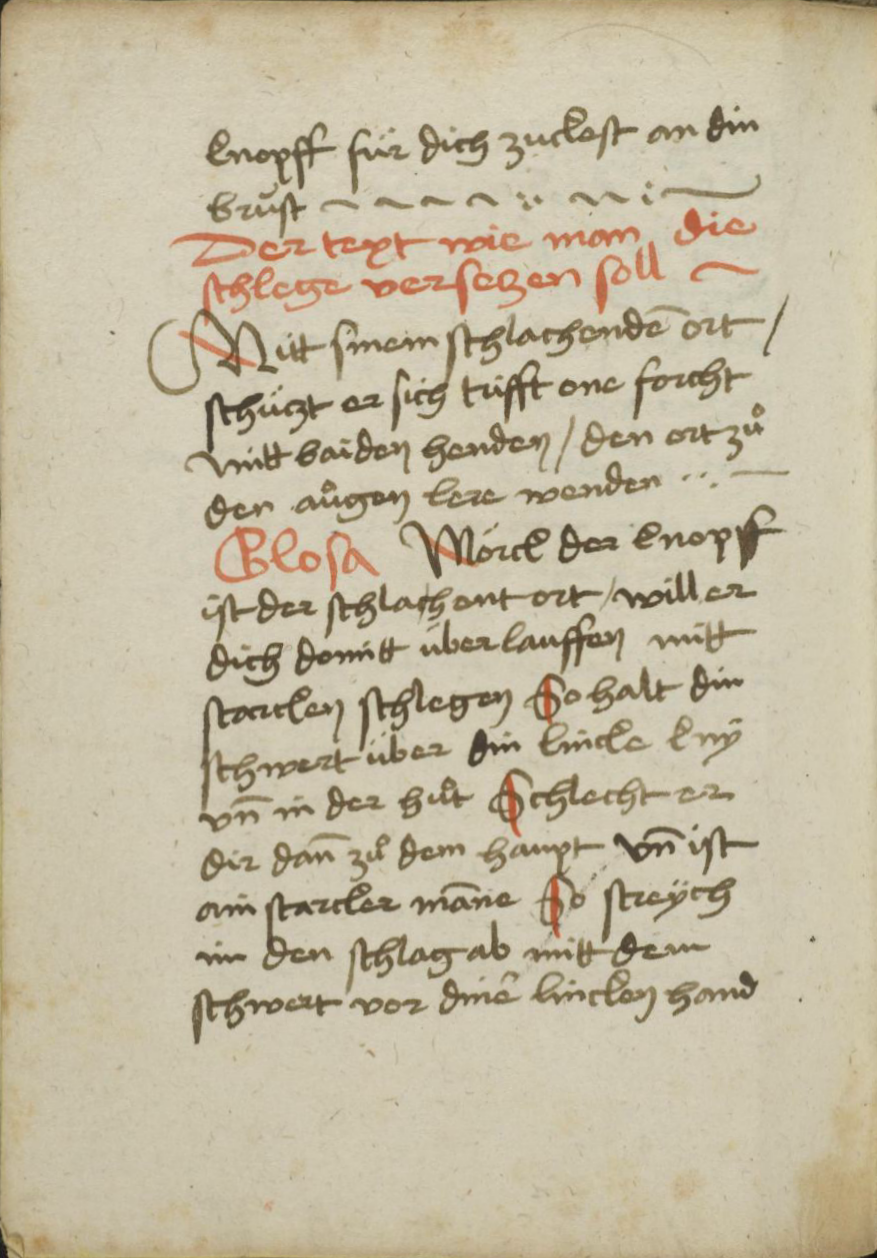 knopff für dich zuckest an din
brust
Der text wie man die
schlege versetzen soll
Mitt sinem schlachendē ort /
schützt er sich trifft one forcht
mitt baiden henden / den ort zů
den aůgen lere wenden
Glosa Mörck der knopff
ist der schlachent ort / will er
dich domitt über lauffen mitt
starcken schlegen So halt din
schwert über din lincke kny
vn̄ in der hůt Schlecht er
dir dan̄ zů dem haupt vn̄ ist
ain starcker māne So streych
im den schlag ab mitt dem
schwert vor dinē lincken hand